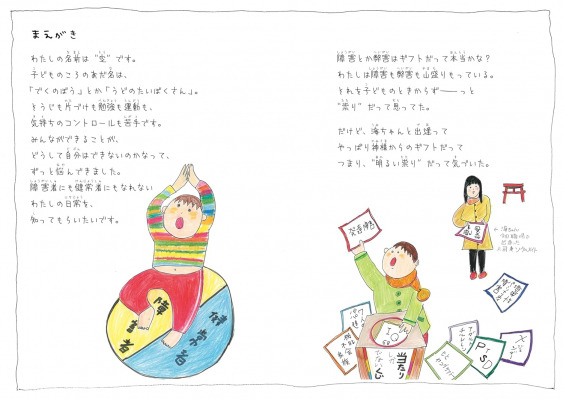 まえがき
わたしの名前は“空”です。
子どものころのあだ名は、
「でくのぼう」とか「うどのたいぼくさん」。
そうじも片づけも勉強も運動も、
気持ちのコントロールも苦手です。
みんなができることが、
どうして自分はできないのかなって、
ずっと悩んできました。
障害者にも健常者にもなれない
わたしの日常を、
知ってもらいたいです。
障害者
健常者
障害とか弊害はギフトだって本当かな?
わたしは障害も弊害も山盛りもっている。
それを子どものときからず——っと
“祟り”だって思ってた。
だけど、海ちゃんと出逢って
やっぱり神様からのギフトだって
つまり、“明るい祟り”だって気づいた。
発達障害
当たり
しか
ないくじ
PTSD